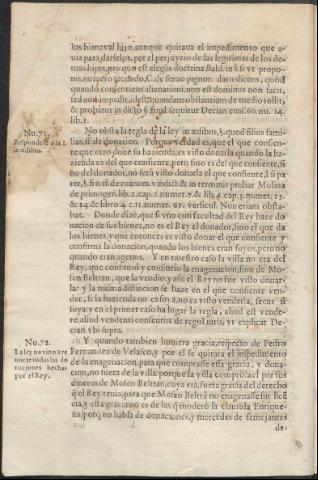 los bienes al hijo, aunque quitaua el impedimento que a-
uia para darselos, por el perjuyzio de las legitimas de los de-
mas hijos, pro quo est elegãs doctrina Bald. in l. si ve propo-
nis, numero secundo, C. de seruo pignor. dato dicens, quòd
quando consentiens alienationi, non est dominus non facit,
sed non impedit, idest, quandam obstantiam de medio tollit,
& probatur in dicto §. final. sequitur Decian. cons. 60. nu. 14.
lib. 1.
Nu. 71.
Respondese a la l.
in ædibus.
No obsta la regla dela ley in ædibus, §. quod filius fami-
lias, ff. de donation. Porque verdad es, que el que consien-
te que otro done su hazienda, es visto donarla quando la ha-
zienda es del que consiente, pero sino es del que consiente, si
no del donador, no serà visto donarla el que consiente, l. si pa-
ter, §. fin. ff. de manum. vindict. & in terminis probat Molina
de primogen. lib. 2. cap. 2. numer. 7. & lib. 4. cap. 3. numer. 23.
& 24. & libro 4. c. 11. numer. 67. versicul. Non etiam obsta-
bat. Donde dize, que si vno con facultad del Rey haze do
nacion de sus bienes, no es el Rey el donador, sino el que da
los bienes, y que entonces es visto donar el que consiente y
confirma la donacion, quando los bienes eran suyos, pero no
quando eran agenos. Y en nuestro caso la villa no era del
Rey, que confirmò y consintio la enagenacion, sino de Mo-
sen Beltran, que la vendio, y assi el Rey no fue visto donar-
la: y la misma distincion se haze en el que consiente ven-
der, si la hazienda no es suya, no es visto venderla, secus si
suya: y en el primer caso ha lugar la regla, aliud est vende-
re, aliud vendenti consentire de regul. iuris, vt explicat De-
cian vbi supra.
Nu. 72.
La ley no vino à re
uocar todas las do
naciones hechas
por el Rey.
Y quando tambien huuiera gracia, respeto de Pedro
Fernandez de Velasco, y por el se quitara el impedimento
de la enagenacion, para que comprasse esta gracia, y dona-
cion, no fuera de la villa: porque la villa comprola el por sus
dineros de Mosen Beltran, cuya era, fuera gracia del derecho
q̃ el Rey tenia, para que Mosen Beltrã no enagenasse sin licẽ
cia, y esta gracia no es de las q̃ moderò la clausula Enrique-
ña: porq̃ no habla de donaciones, y mercedes de semejantes
de-